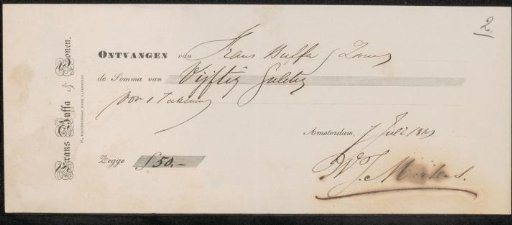 2.
Frans Buffa & Zonen.
ONTVANGEN van Frans Buffa & Zonen
de Somma van Vijftig Gulden
voor 1 Teekening
Amsterdam, 7 Juli
Zegge f 50,-